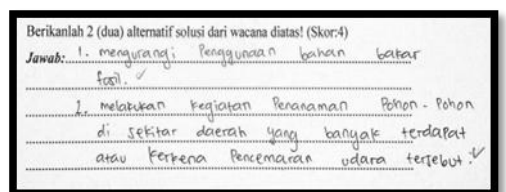 Berikanlah 2 (dua) alternatif solusi dari wacana diatas! (Skor:4)
Jawab: 1. mengurangi Penggunaan bahan bakar
fosil. ✓
2. melakukan kegiatan Penanaman Pohon - Pohon
di sekitar daerah yang banyak terdapat
atau terkena Pencemaran udara tersebut. ✓